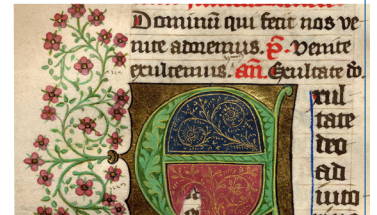 Dominum qui fecit nos ve
nite adoremus. p̄. Venite
exultemus. añ. Exultate do.
E xul
tate
deo
ad
iuto